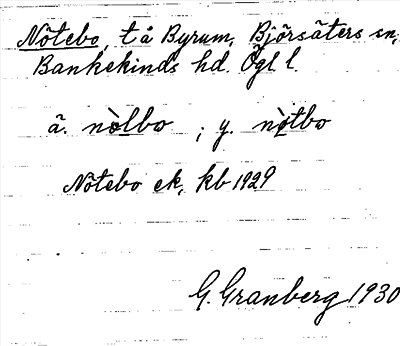 Nötebo, t å Byrum, Björsäters sn,
Bankekinds hd. Ögl l.
ä. nòlbo ; y. nòtbo
Nötebo ek, kb 1929
G. Granberg 1930